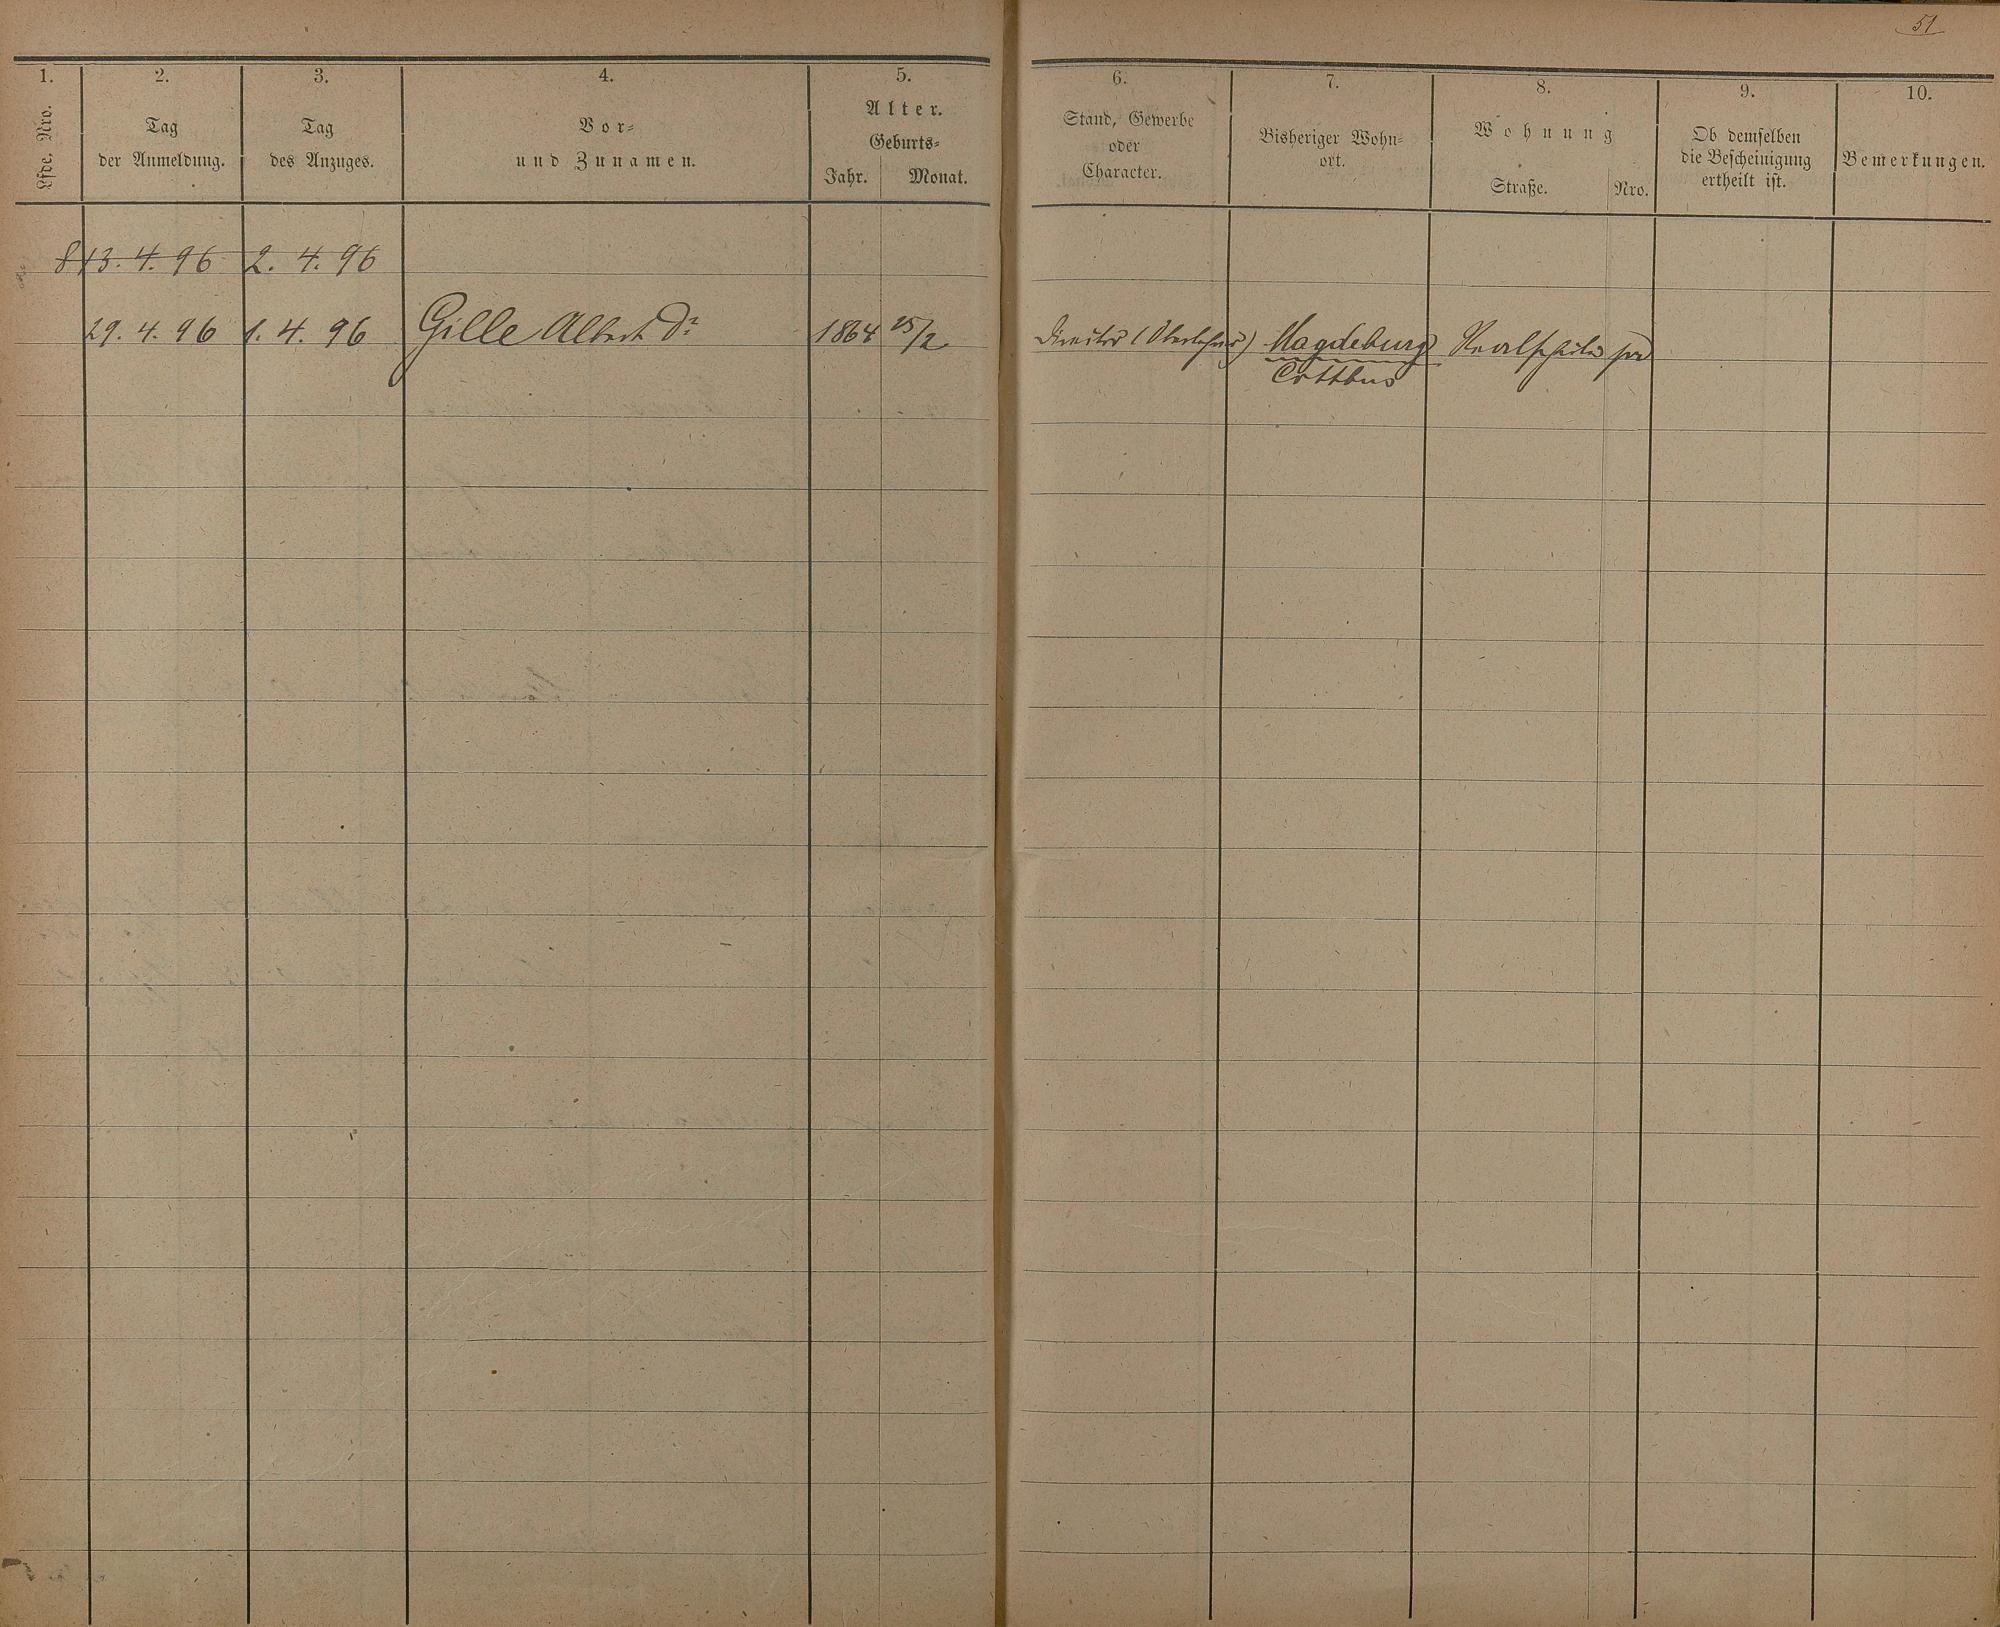 51
1. 2. 3. 4. 5. 6. 7. 8. 9. 10.
Lfde. Nro.
Tag
der Anmeldung.
Tag
des Anzuges.
Vor=
und Zunamen.
Alter.
Geburts=
Jahr. Monat.
Stand, Gewerbe
oder
Character.
Bisheriger Wohn=
ort.
Wohnung
Straße. Nro.
Ob demselben
die Bescheinigung
ertheilt ist.
Bemerkungen.
13. 4. 96 2. 4. 96
29. 4. 96 1. 4. 96 Gille Albert Dr 1864 25/2 Director (Oberlehrer) Magdeburg
Cottbus